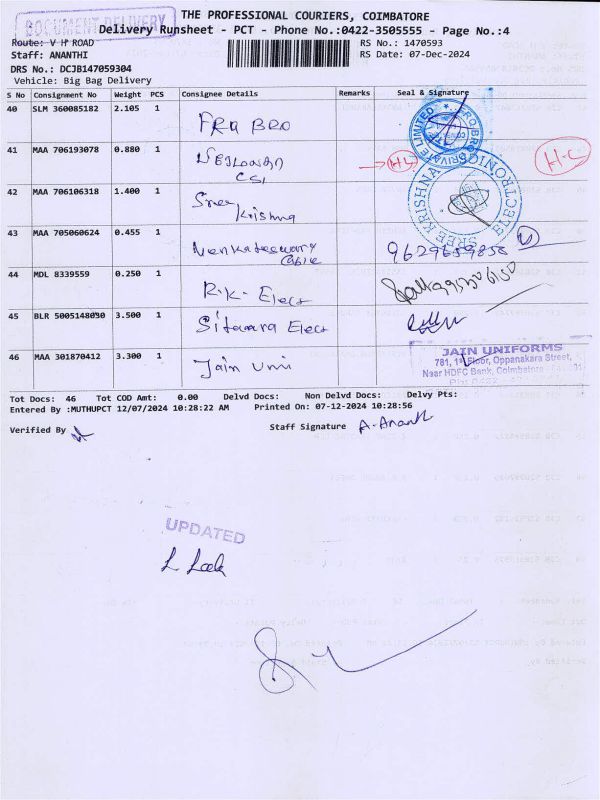 THE PROFESSIONAL COURIERS, COIMBATORE
DOCUMENT DELIVERY
Delivery Runsheet - PCT - Phone No.:0422-3505555 - Page No.:4
Route: V H ROAD
RS No.: 1470593
Staff: ANANTHI
RS Date: 07-Dec-2024
DRS No.: DCJB147059304
Vehicle: Big Bag Delivery
S No Consignment No Weight PCS Consignee Details Remarks Seal & Signature
40 SLM 360085182 2.105 1 FRO BRO
41 MAA 706193078 0.880 1 CSI H-C H-C
42 MAA 706106318 1.400 1 Sree Krishna
SREE KRISHNA ELECTRONICS
43 MAA 705060624 0.455 1 Venkateswary Cable
44 MDL 8339559 0.250 1 R.K. Elect
45 BLR 5005148030 3.500 1 Sitaara Elect
46 MAA 301870412 3.300 1 Jain Uni
JAIN UNIFORMS
781, 1st Floor, Oppanakara Street,
Near HDFC Bank, Coimbatore
Tot Docs: 46 Tot COD Amt: 0.00 Delvd Docs: Non Delvd Docs: Delvy Pts:
Entered By :MUTHUPCT 12/07/2024 10:28:22 AM Printed On: 07-12-2024 10:28:56
Verified By Staff Signature A. Ananth
UPDATED